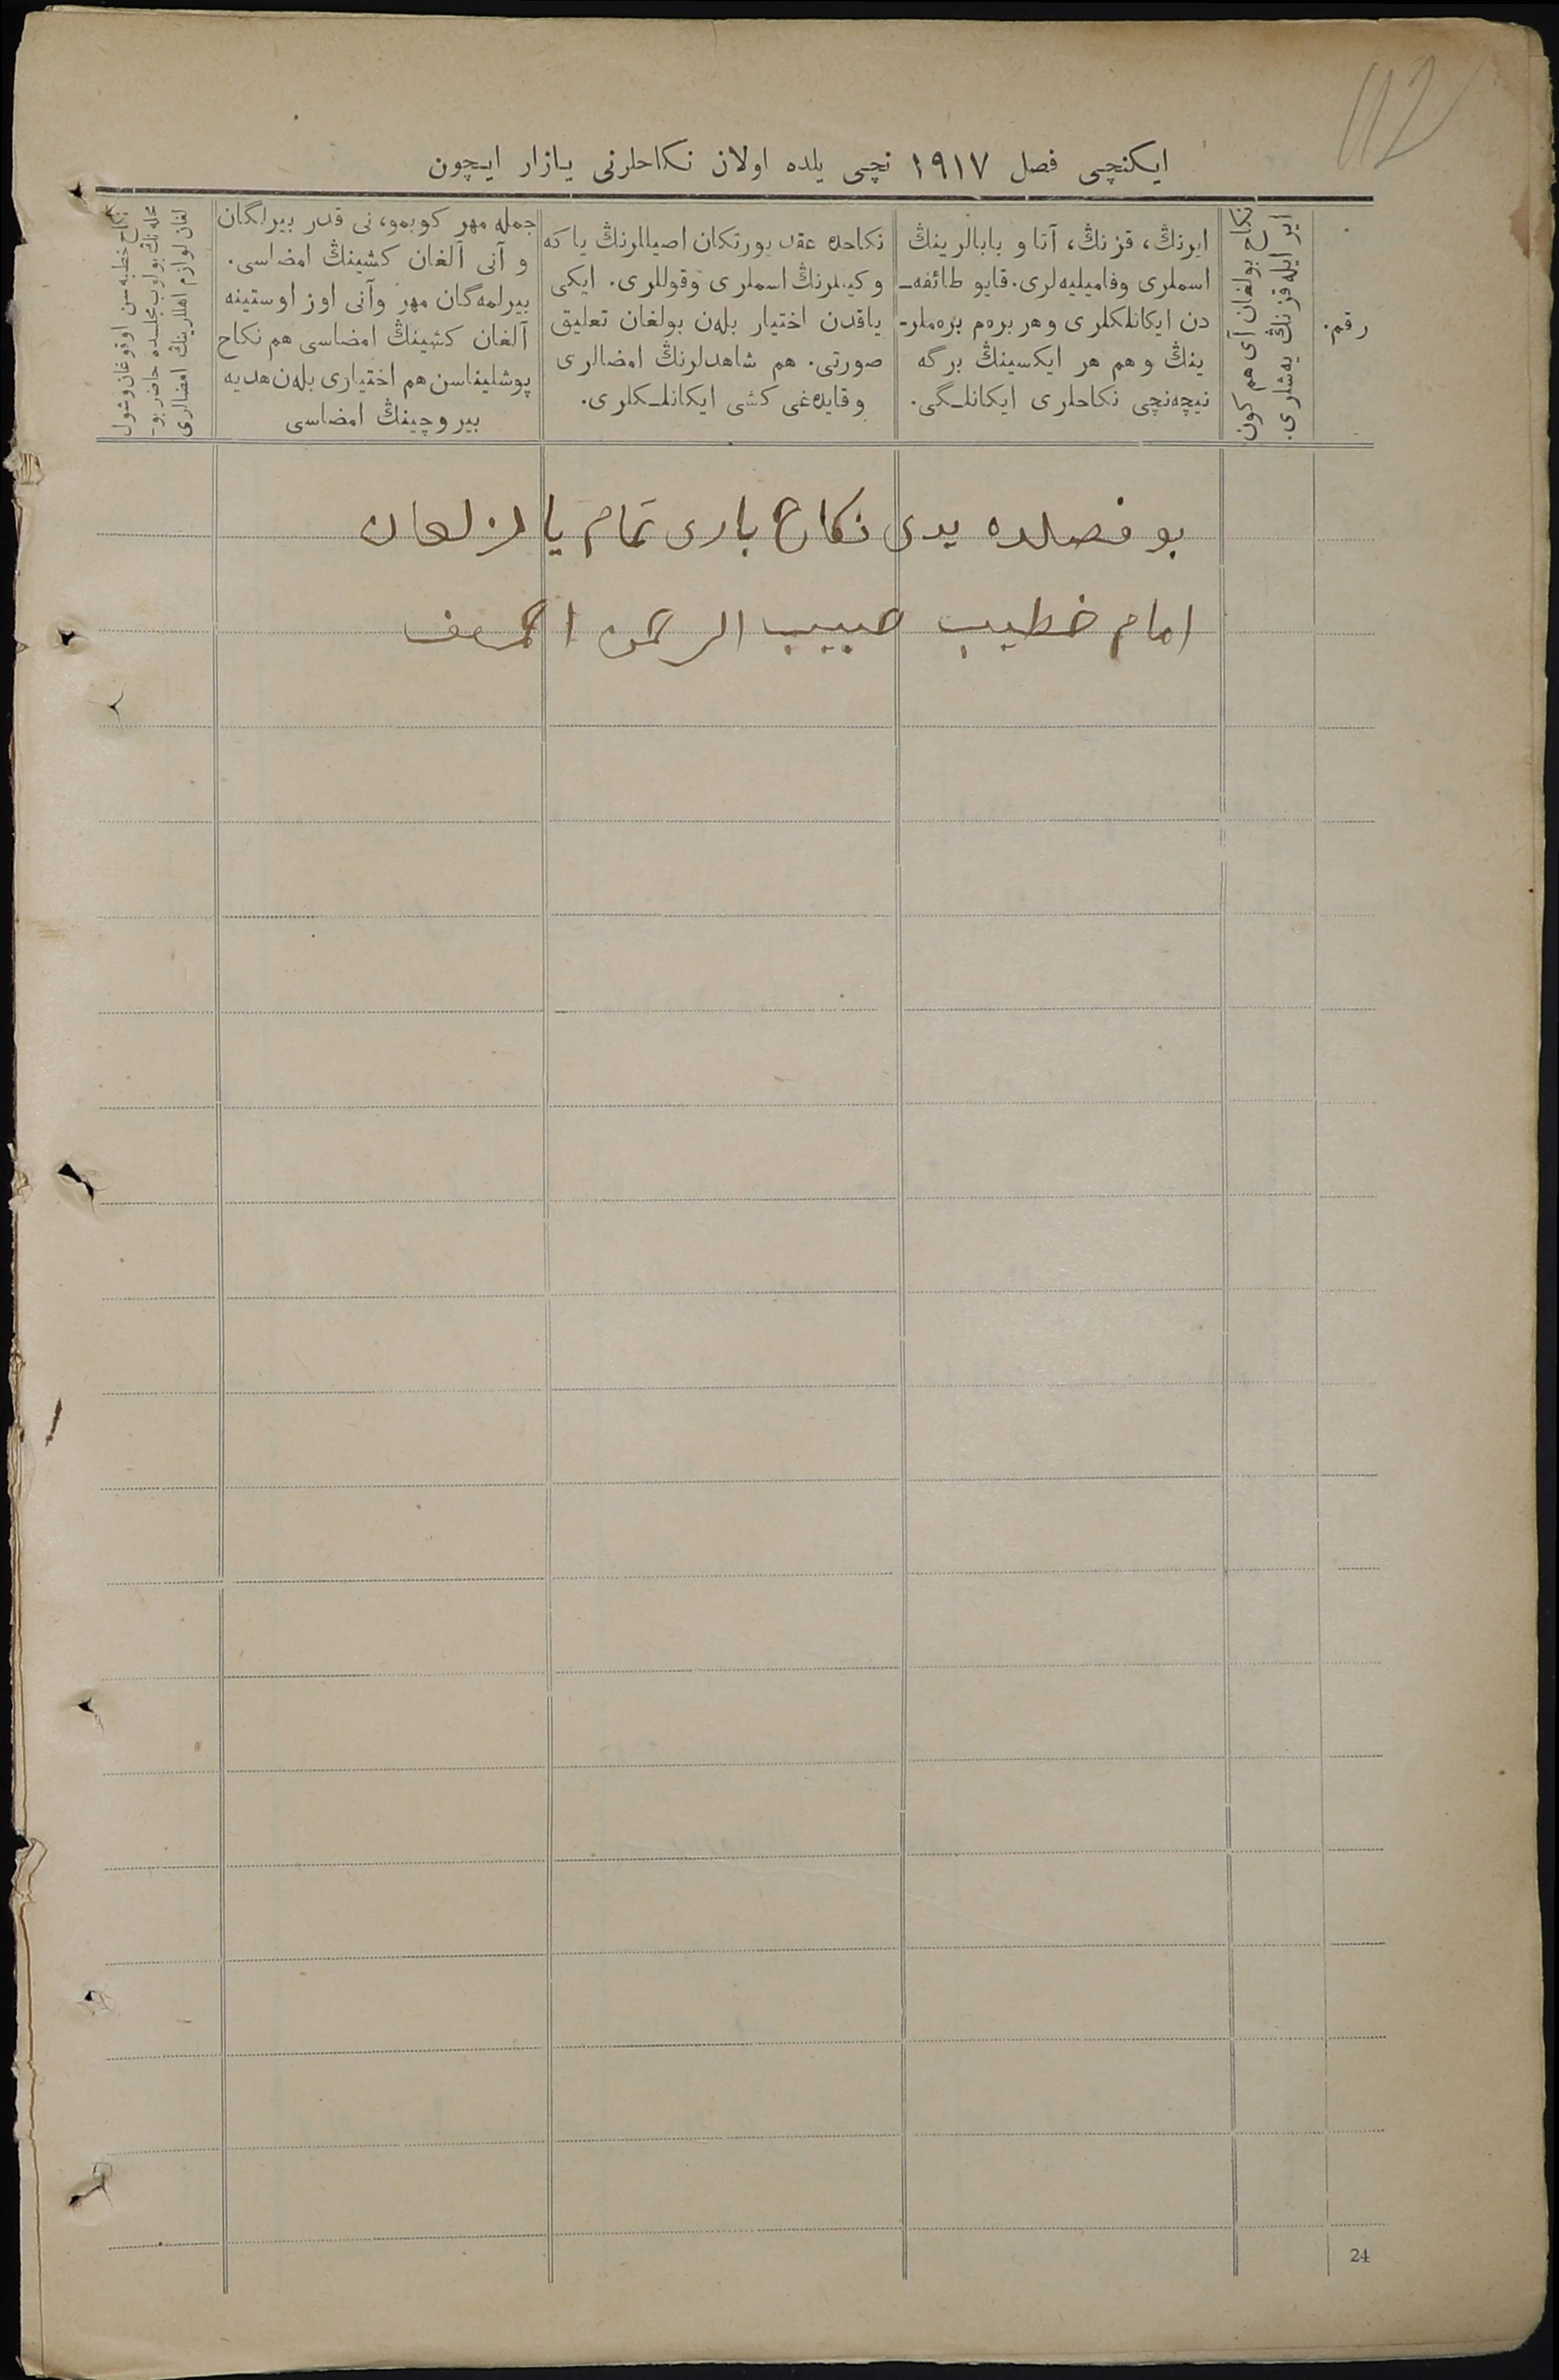 112
ایكنچی فصل ۱۹۱۷ نچی یلده اولان نكاحلرنی یازار ایچون
رقم.
نكاح بولغان آی هم كون
ایر ایله قزنڭ یه‌شلری.
ایرنڭ، قزنڭ، آتا و بابالرینڭ
اسملری وفامیلیه‌لری. قایو طائفه‌ـ
دن ایكانلكلری وهر بره‌م بره‌ملرـ
ینڭ و هم هر ایكسینڭ برگه
نیچه‌نچی نكاحلری ایكانلـگی.
نكاحده عقد یورتكان اصیللرنڭ یا كه
وكیللرنڭ اسملری وقوللری. ایكی
یاقدن اختیار بله‌ن بولغان تعلیق
صورتی. هم شاهدلرنڭ امضالری
وقایده‌غی كشی ایكانلـكلری.
جمله مهر كوبمو، نی قدر بیرلگان
و آنی آلغان كشینڭ امضاسی.
بیرلمه‌گان مهر وآنی اوز اوستینه
آلغان كشینڭ امضاسی هم نكاح
پوشلیناسن هم اختیاری بله‌ن هدیه
بیروچینڭ امضاسی
نكاح خطبه‌سن اوقوغان وشول
محله‌نڭ بولوب مجلسده حاضر بوـ
لغان لوازم اهللرینڭ امضالری
بو فصلده یدی نكاح باری تمام یازلغان
امام خطیب حبیب الرحمن احمدف
24